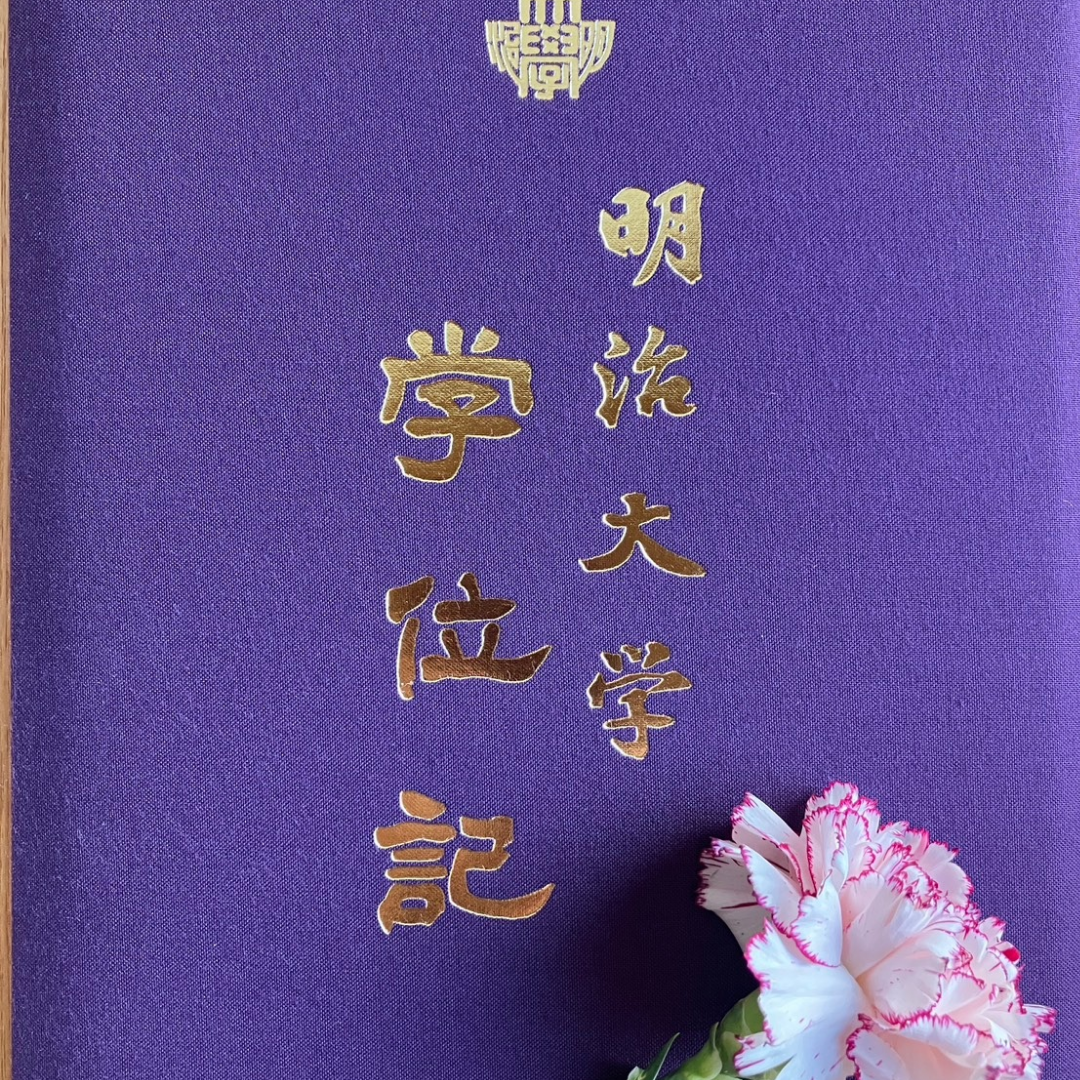 明治大学
学位記